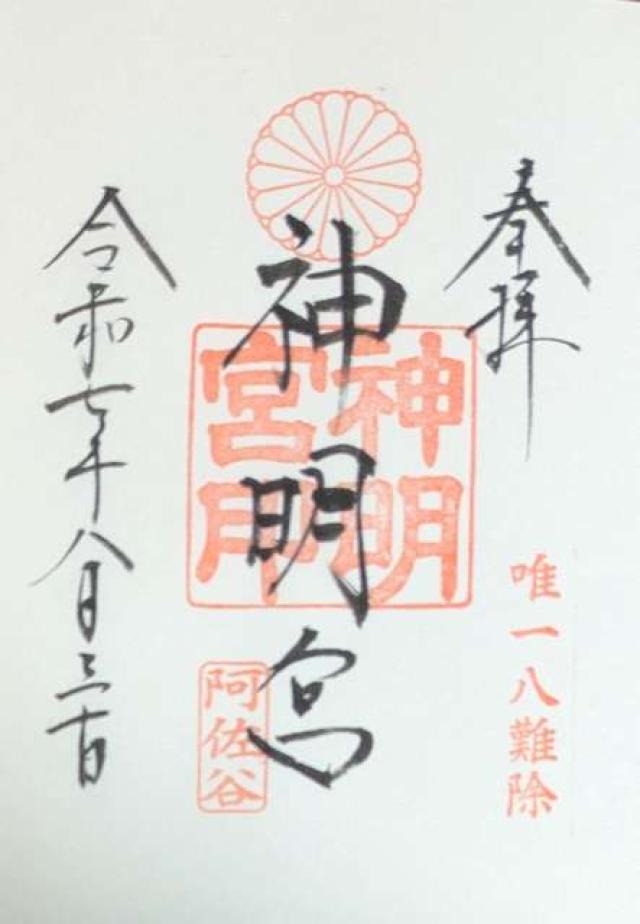 奉拝
唯一八難除
神明宮
神明
宮印
阿佐谷
令和七年八月三十日